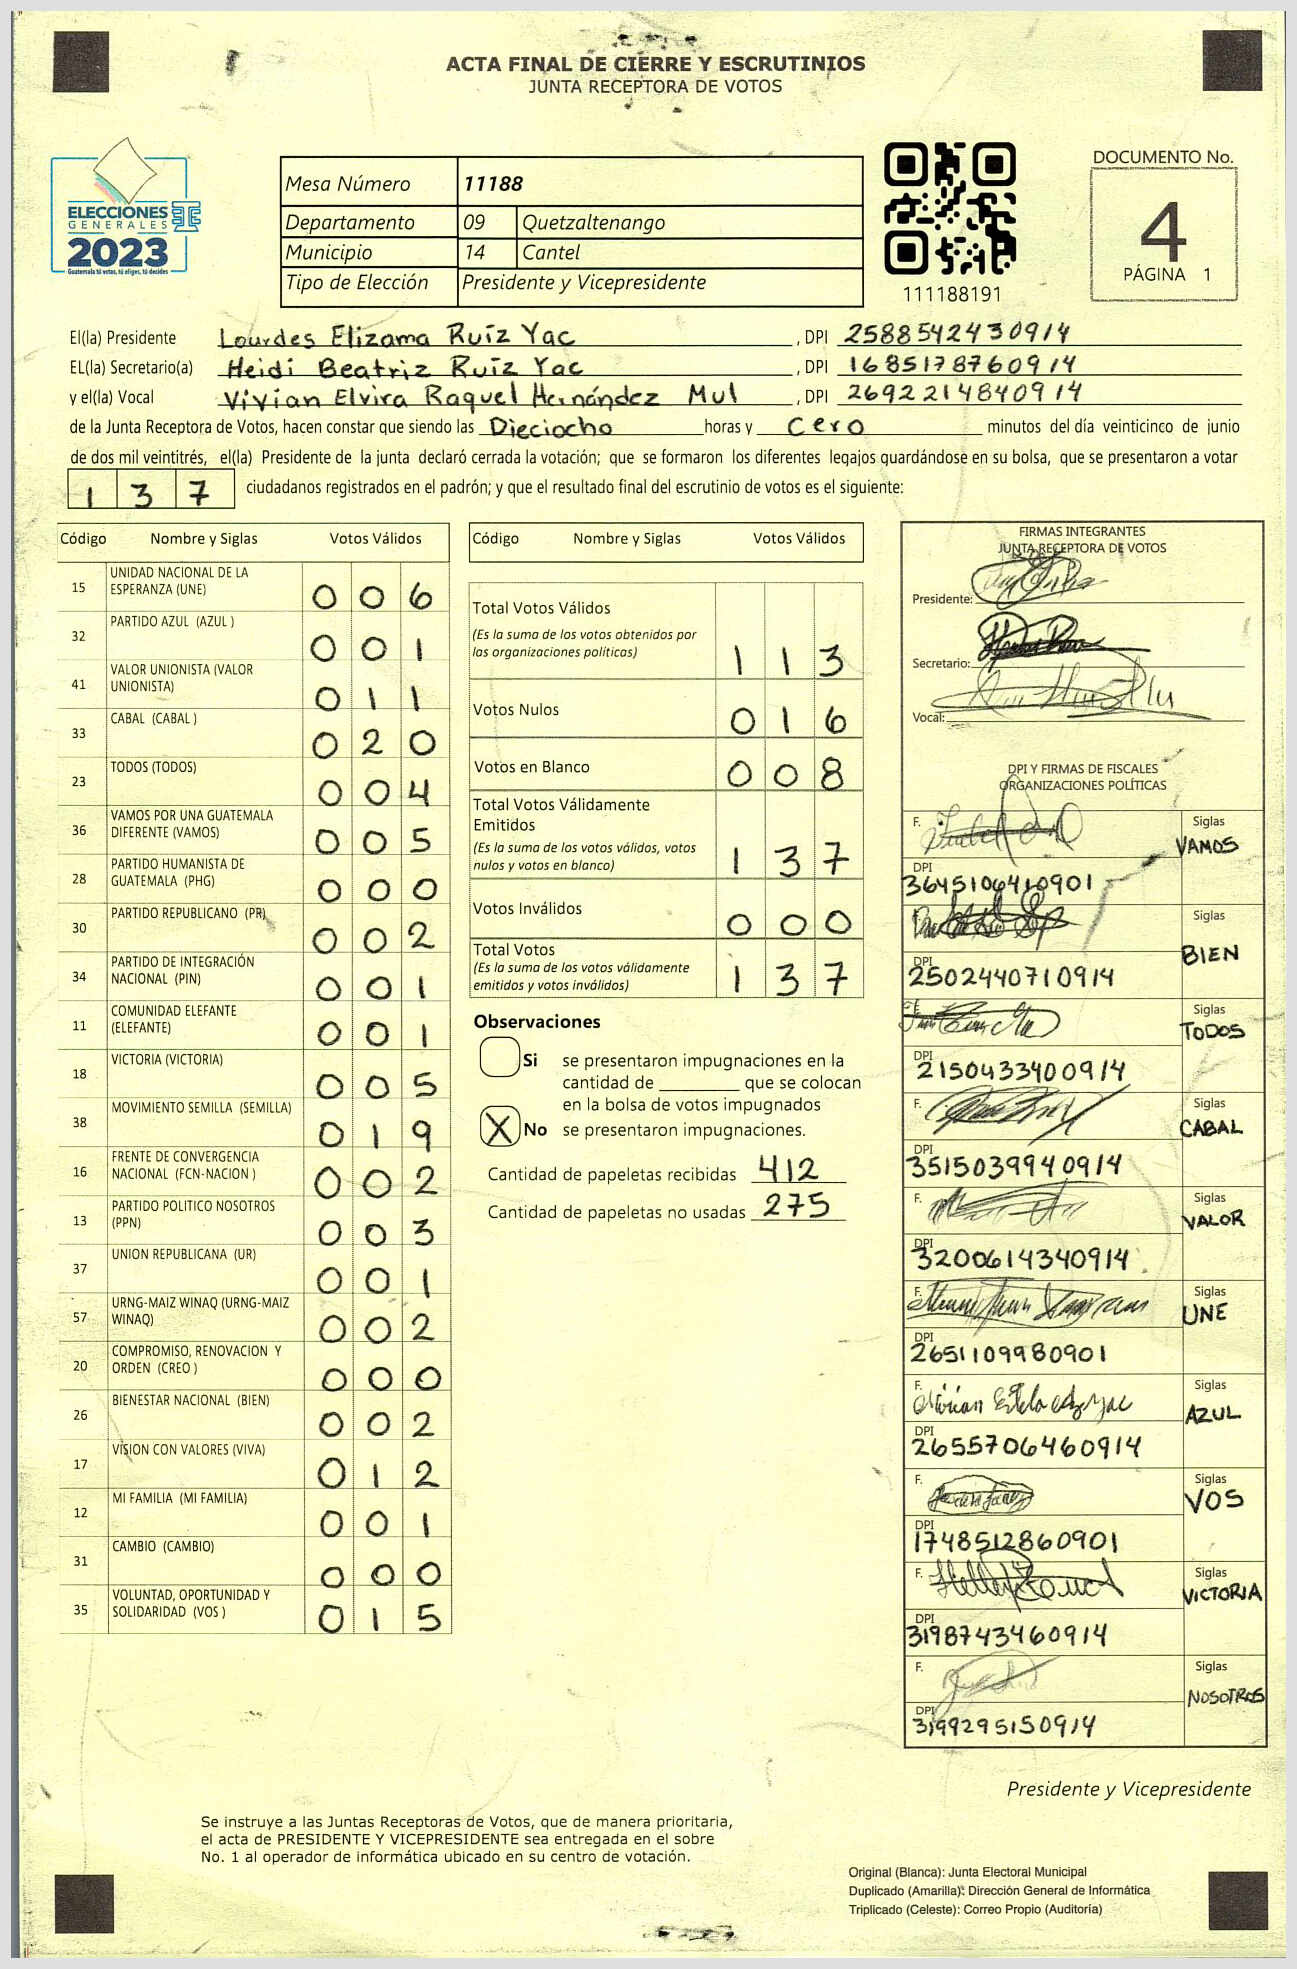 ACTA FINAL DE CIERRE Y ESCRUTINIOS
JUNTA RECEPTORA DE VOTOS
ELECCIONES
GENERALES
2023
Guatemala tú votas, tú eliges, tú decides
Mesa Número 11188
Departamento 09 Quetzaltenango
Municipio 14 Cantel
Tipo de Elección Presidente y Vicepresidente
111188191
DOCUMENTO No.
4
PÁGINA 1
El(la) Presidente Lourdes Elizama Ruíz Yac, DPI 2588542430914
EL(la) Secretario(a) Heidi Beatriz Ruíz Yac, DPI 1685178760914
y el(la) Vocal Vivian Elvira Raquel Hernández Mul, DPI 2692214840914
de la Junta Receptora de Votos, hacen constar que siendo las Dieciocho horas y Cero minutos del día veinticinco de junio
de dos mil veintitrés, el(la) Presidente de la junta declaró cerrada la votación; que se formaron los diferentes legajos guardándose en su bolsa, que se presentaron a votar
1 3 7 ciudadanos registrados en el padrón; y que el resultado final del escrutinio de votos es el siguiente:
Código Nombre y Siglas Votos Válidos
15 UNIDAD NACIONAL DE LA
ESPERANZA (UNE) 0 0 6
32 PARTIDO AZUL (AZUL ) 0 0 1
41 VALOR UNIONISTA (VALOR
UNIONISTA) 0 1 1
33 CABAL (CABAL ) 0 2 0
23 TODOS (TODOS) 0 0 4
36 VAMOS POR UNA GUATEMALA
DIFERENTE (VAMOS) 0 0 5
28 PARTIDO HUMANISTA DE
GUATEMALA (PHG) 0 0 0
30 PARTIDO REPUBLICANO (PR) 0 0 2
34 PARTIDO DE INTEGRACIÓN
NACIONAL (PIN) 0 0 1
11 COMUNIDAD ELEFANTE
(ELEFANTE) 0 0 1
18 VICTORIA (VICTORIA) 0 0 5
38 MOVIMIENTO SEMILLA (SEMILLA) 0 1 9
16 FRENTE DE CONVERGENCIA
NACIONAL (FCN-NACION ) 0 0 2
13 PARTIDO POLITICO NOSOTROS
(PPN) 0 0 3
37 UNION REPUBLICANA (UR) 0 0 1
57 URNG-MAIZ WINAQ (URNG-MAIZ
WINAQ) 0 0 2
20 COMPROMISO, RENOVACION Y
ORDEN (CREO ) 0 0 0
26 BIENESTAR NACIONAL (BIEN) 0 0 2
17 VISION CON VALORES (VIVA) 0 1 2
12 MI FAMILIA (MI FAMILIA) 0 0 1
31 CAMBIO (CAMBIO) 0 0 0
35 VOLUNTAD, OPORTUNIDAD Y
SOLIDARIDAD (VOS ) 0 1 5
Código Nombre y Siglas Votos Válidos
Total Votos Válidos
(Es la suma de los votos obtenidos por
las organizaciones políticas) 1 1 3
Votos Nulos 0 1 6
Votos en Blanco 0 0 8
Total Votos Válidamente
Emitidos
(Es la suma de los votos válidos, votos
nulos y votos en blanco) 1 3 7
Votos Inválidos 0 0 0
Total Votos
(Es la suma de los votos válidamente
emitidos y votos inválidos) 1 3 7
Observaciones
Si se presentaron impugnaciones en la
cantidad de ________ que se colocan
en la bolsa de votos impugnados
X No se presentaron impugnaciones.
Cantidad de papeletas recibidas 412
Cantidad de papeletas no usadas 275
FIRMAS INTEGRANTES
JUNTA RECEPTORA DE VOTOS
Presidente:
Secretario:
Vocal:
DPI Y FIRMAS DE FISCALES
ORGANIZACIONES POLÍTICAS
F. Siglas
VAMOS
DPI
3645106410901
F. Siglas
BIEN
DPI
2502440710914
F. Siglas
TODOS
DPI
2150433400914
F. Siglas
CABAL
DPI
3515039940914
F. Siglas
VALOR
DPI
3200614340914
F. Siglas
UNE
DPI
2651109980901
F. Siglas
AZUL
DPI
2655706460914
F. Siglas
VOS
DPI
1748512860901
F. Siglas
VICTORIA
DPI
3198743460914
F. Siglas
NOSOTROS
DPI
3199295150914
Presidente y Vicepresidente
Se instruye a las Juntas Receptoras de Votos, que de manera prioritaria,
el acta de PRESIDENTE Y VICEPRESIDENTE sea entregada en el sobre
No. 1 al operador de informática ubicado en su centro de votación.
Original (Blanca): Junta Electoral Municipal
Duplicado (Amarilla): Dirección General de Informática
Triplicado (Celeste): Correo Propio (Auditoría)